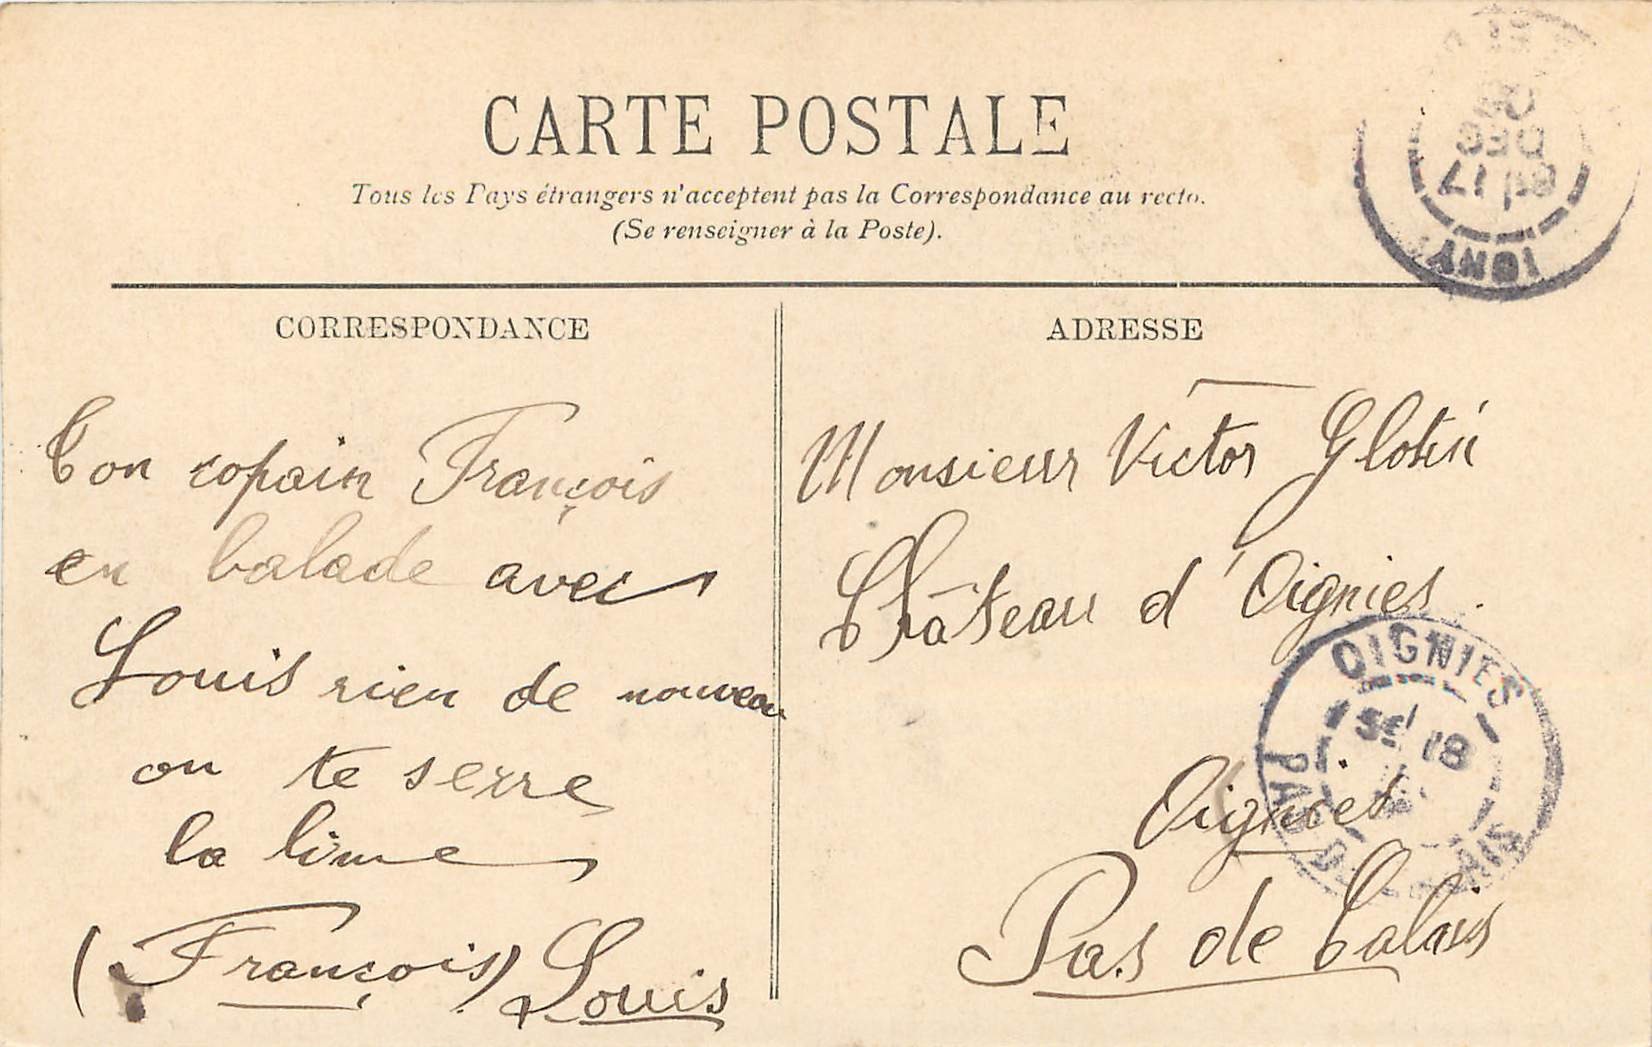 CARTE POSTALE
Tous les Pays étrangers n'acceptent pas la Correspondance au recto.
(Se renseigner à la Poste).
CORRESPONDANCE
Ton copain François
en balade avec
Louis rien de nouveau
on te serre
la lime
(François) Louis
ADRESSE
Monsieur Victor Glotin
Château d'Oignies.
Oignies
Pas de Calais
OIGNIES
18
PAS DE CALAIS
17
DEC